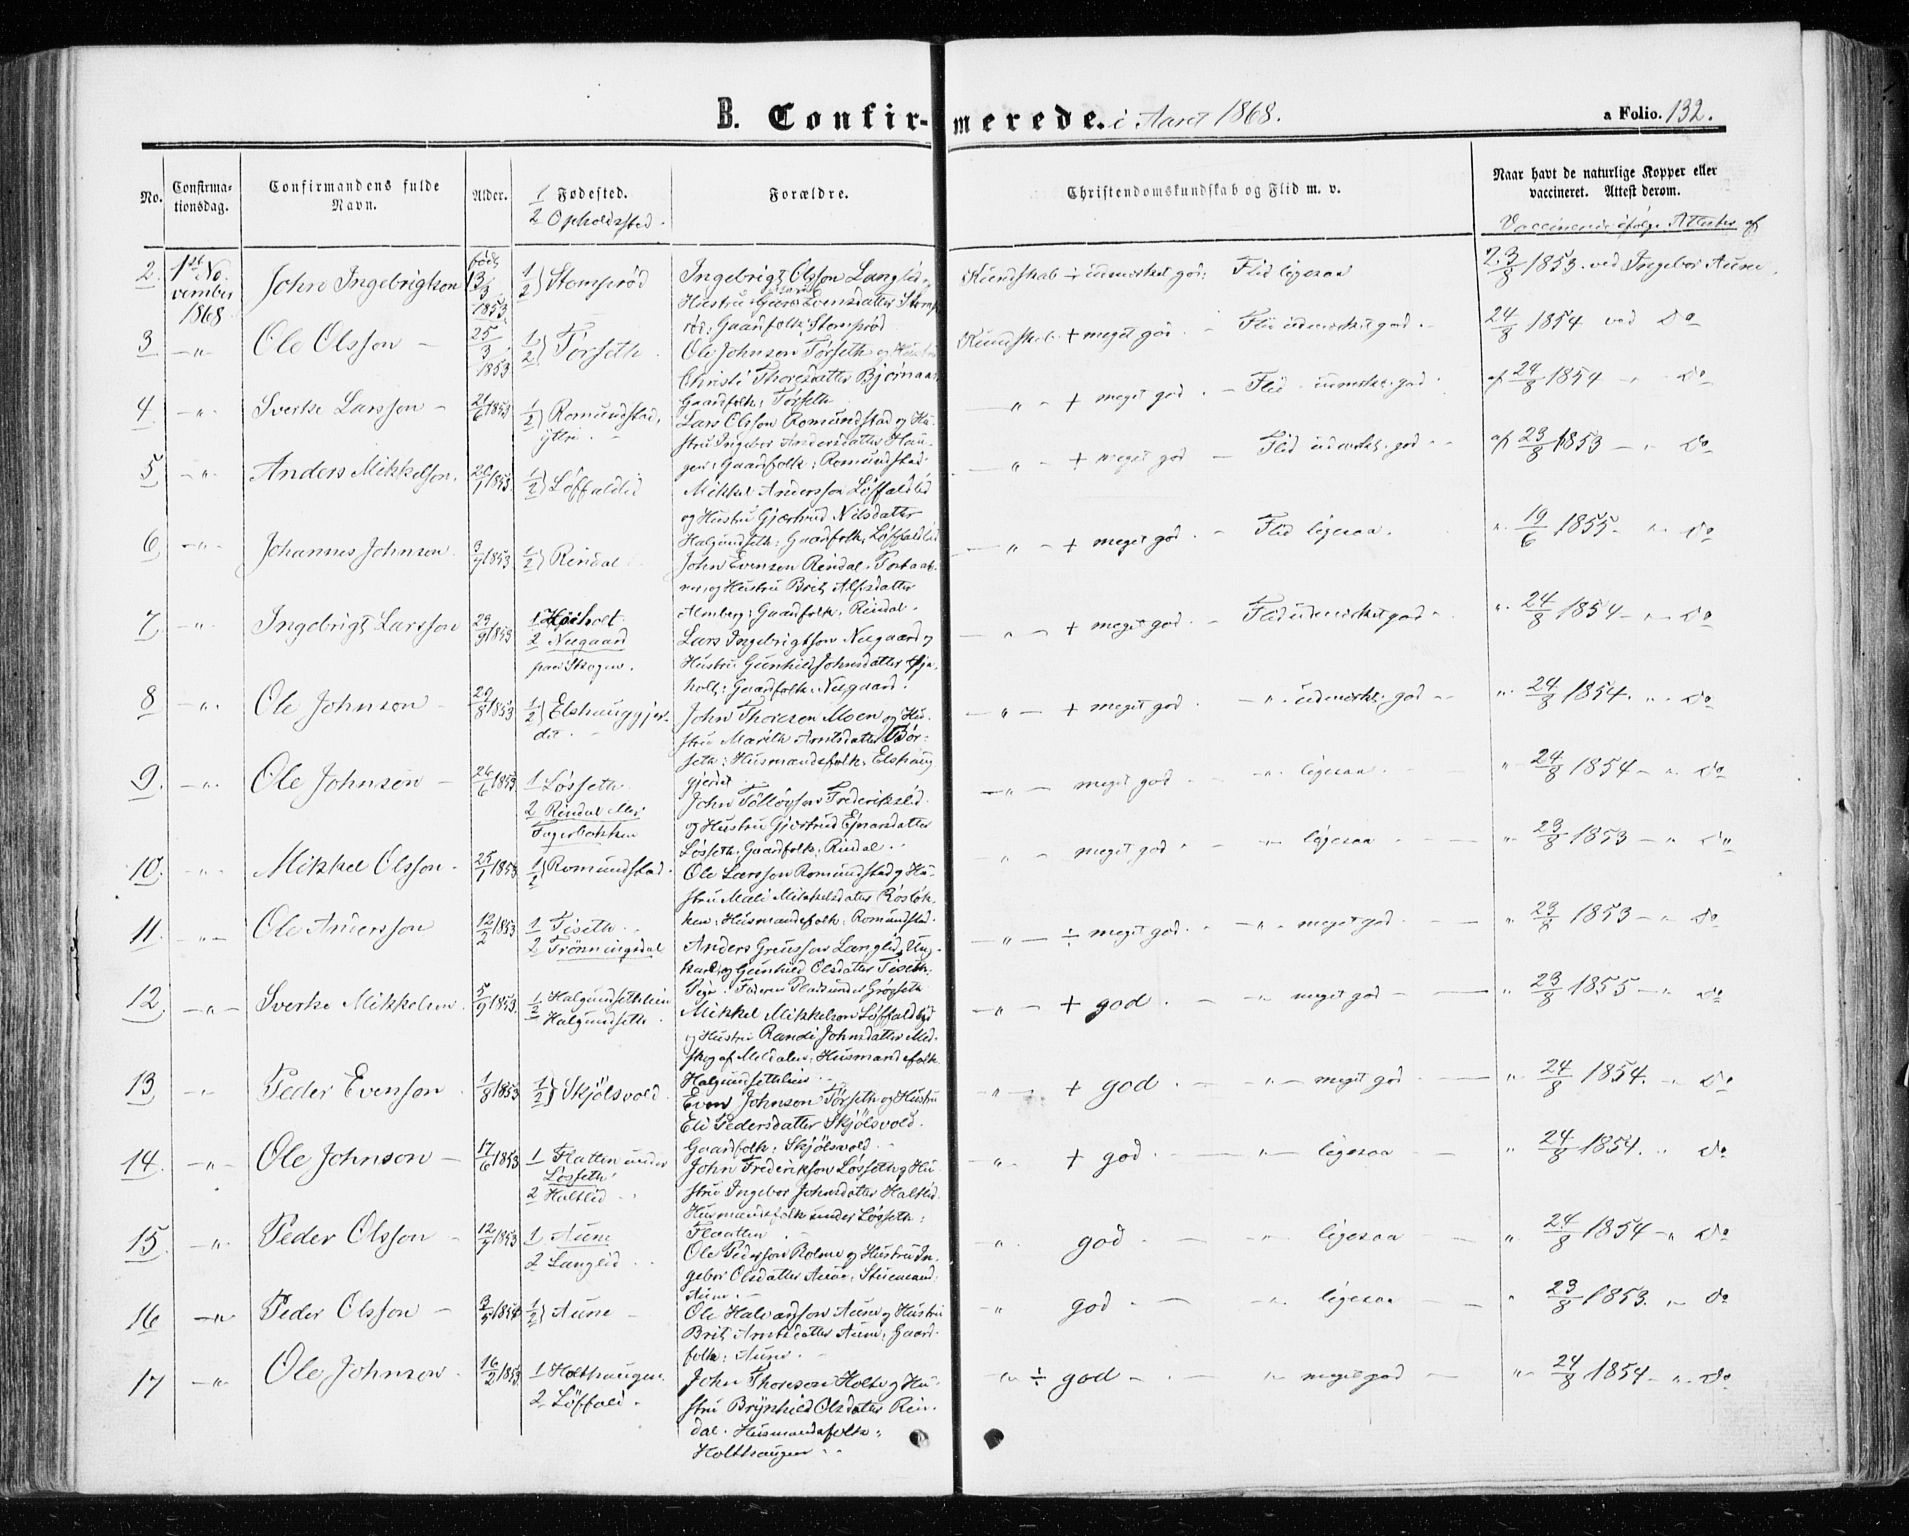 B. Confirmerede. i Aaret 1868.
a Folio. 132.
No.
Confirmationsdag.
Confirmandens fulde Navn.
Alder.
1 Fødested.
2 Opholdssted.
Forældre.
Christendomskundskab og Flid m. v.
Naar havt de naturlige Kopper eller vaccineret. Attest derom.
Vaccinerede ifølge Attester af
2. 1ste November 1868 John Ingebrigtson født 13/3 1853. 1/2} Stomprød
Ingebrigt Olsson Langlid
Hustru Guro Evensdatter Stomp
rød: Gaardfolk: Stomprød
Kundskab ÷ udmerket god: Flid ligesaa 23/8 1853. ved Ingebor Aune.
3 -"- Ole Olsson - 25/3 1853 1/2} Torseth.
Ole Johnson Torseth og Hustru
Christi Thoresdatter Bjørnaas
Gaardfolk: Torseth
Kundskab + meget god. - Flid udmerket god. - 24/8 1854 ved Do
4 -"- Sverke Larsson - 24/6 1853 1/2} Romundstad, yttre.
Lars Olsson Romundstad og Hu-
stru Ingebor Andersdatter Hau-
gen: Gaardfolk: Romundstad.
-"- + meget god. - Flid udmerket god. af 24/8 1854 -"- Do
5 -"- Anders Mikkelson. 20/1 1853. 1/2} Løffaldlid
Mikkel Andersson Løffaldlid
og Hustru Gjertrud Nilsdatter
Halgundseth: Gaardfolk: Løffaldlid
-"- + meget god - Flid udmerket god - af 23/8 1853 -"- Do
6 -"- Johannes Johnson. 9/9 1853 1/2} Rindal
John Evenson Rindal
og Hustru Brit Alfsdatter
Almberg: Gaardfolk: Rindal.
-"- + meget god. - Flid ligesaa. " 19/6 1855 -"- Do
7 -"- Ingebrigt Larsson 29/9 1853 1 Høiholt
2 Nygaard
paa Skogen.
Lars Ingebrigtson Nygaard og
Hustru Gunhild Johnsdatter
holt: Gaardfolk: Nygaard.
-"- + meget god. - Flid udmerket god - " 24/8 1854 -"- Do
8 -"- Ole Johnson - 29/8 1853 1/2} Elshauggjer-
det.
John Thoreson Moen og Hu-
stru Marith Arntsdatter Bør-
seth: Husmandsfolk: Elshaug
gjerdet
-"- + meget god. -"- udmerket god - " 24/8 1854. -"- Do
9. -"- Ole Johnson - 26/6 1853 1 Løsseth.
2 Rindal eller
Fagerbakken
John Tølløvson Frederikslid.
og Hustru Gjertrud Ejnarsdatter
Løsseth: Gaardfolk: Rindal.
-"- meget god -"- ligesaa. " 24/8 1854 -"- Do
10. -"- Mikkel Olsson. 25/1 1853. 1/2} Romundstad.
Ole Larsson Romundstad og Hu-
stru Mali Mikkelsdatter Røsløk-
ken: Husmandsfolk: Romundstad.
-"- meget god -"- ligesaa - " 23/8 1853 -"- Do
11. -"- Ole Andersson 12/2 1853 1 Tiseth.
2 Trønningsdal
Anders Greusson Langlid, Ung-
karl og Gunhild Olsdatter Tiseth:
Pige.
-"- ÷ meget god. -"- meget god. " 23/8 1853 -"- Do
12. -"- Sverke Mikkelson 5/9 1853. 1 Halgundsethlien
2 Halgundseth.
Mikkel Mikkelson Løffaldlid
og Hustru Randi Johnsdatter Me-
skog af Meldalen: Husmandsfolk
Halgundsethlien
-"- + god. -"- meget god - " 23/8 1855 -"- Do
13. " Peder Evenson 1/8 1853 1/2} Skjølsvold.
Even Johnson Torseth og Hustru
Eli Pedersdatter Skjølsvold.
Gaardfolk: Skjølsvold.
-"- + god. -"- meget god - " 24/8 1854. -"- Do
14. -"- Ole Johnson - 17/6 1853 1 Flatten under
Løsseth
2 Holtlid
John Frederikson Løsseth og Hu-
stru Ingebor Johnsdatter Holtlid.
Husmandsfolk under Løsseth:
Flaatten
-"- + god. -"- ligesaa " 24/8 1854. " Do
15. -"- Peder Olsson - 12/7 1853 1 Aune
2 Langlid
Ole Pederson Rolme og Hustru In-
gebor Olsdatter Aune: Stuemand.
Aune.
-"- god -"- ligesaa " 24/8 1854 -"- Do
16 -"- Peder Olsson - 3/5 1854 1/2} Aune
Ole Halvorsson Aune og Hustru
Brit Arntsdatter Aune: Gaard-
folk: Aune.
-"- god. -"- ligesaa " 23/8 1853. -"- Do
17 -"- Ole Johnson. 16/2 1853. 1 Holthaugen
2 Løffald.
John Thoreson Holte og Hu-
stru Brynhild Olsdatter Rin-
dal. Husmandsfolk:
Holthaugen
-"- ÷ god - -"- meget god - " 24/8 1854 -"- Do